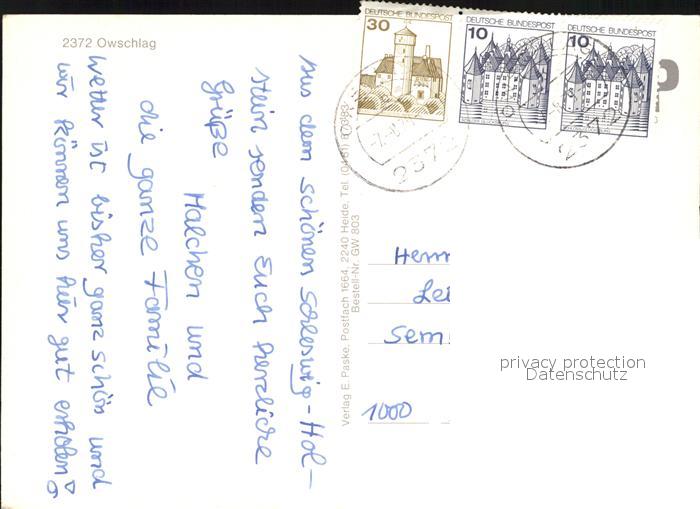 2372 Owschlag
Aus dem schönen Schleswig-Hol-
stein senden Euch herzliche
Grüße
Malchen und
die ganze Familie
Wetter ist bisher ganz schön und
wir können uns hier gut erholen!
Verlag E. Paske, Postfach 1664, 2240 Heide, Tel. (0481) 87083
Bestell-Nr. GW 803
30
DEUTSCHE BUNDESPOST
10
DEUTSCHE BUNDESPOST
10
DEUTSCHE BUNDESPOST
2372
2372
Herrn
Lei
Sem
1000
privacy protection
Datenschutz